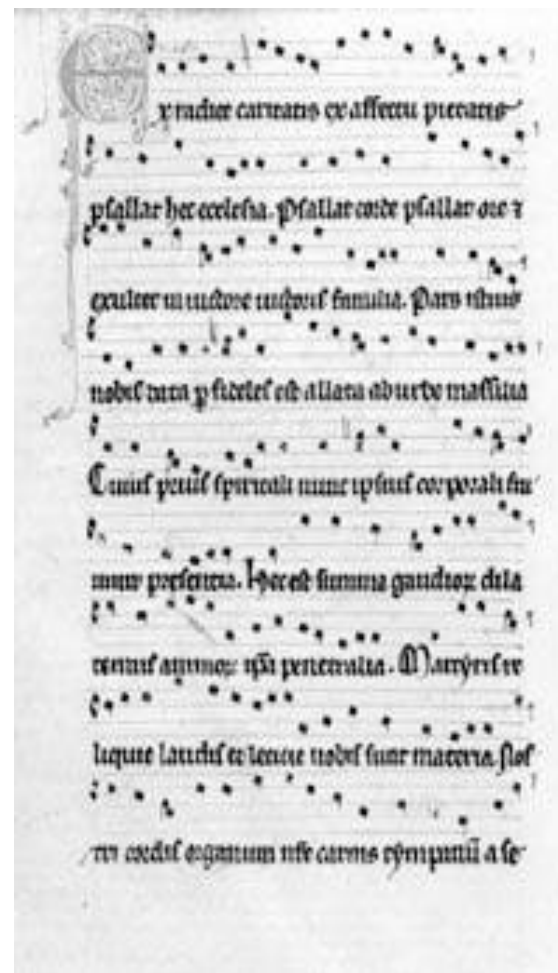 Ex radice caritatis ex affectu pietatis
psallat hec ecclesia. Psallat corde psallat ore ⁊
exultet in uictore uictoris familia. Pars istius
nobis data ꝑ fideles est allata ab urbe massilia
Cuius prius spiritali nunc ipsius corporali frui
mur presentia. Hec est summa gaudioꝝ dila
temus animoꝝ ip̄a penetralia. Martyris re
liquie laudis et leticie nobis sunt materia. Nos
tri cordis organum nr̄e carnis tympanū a se